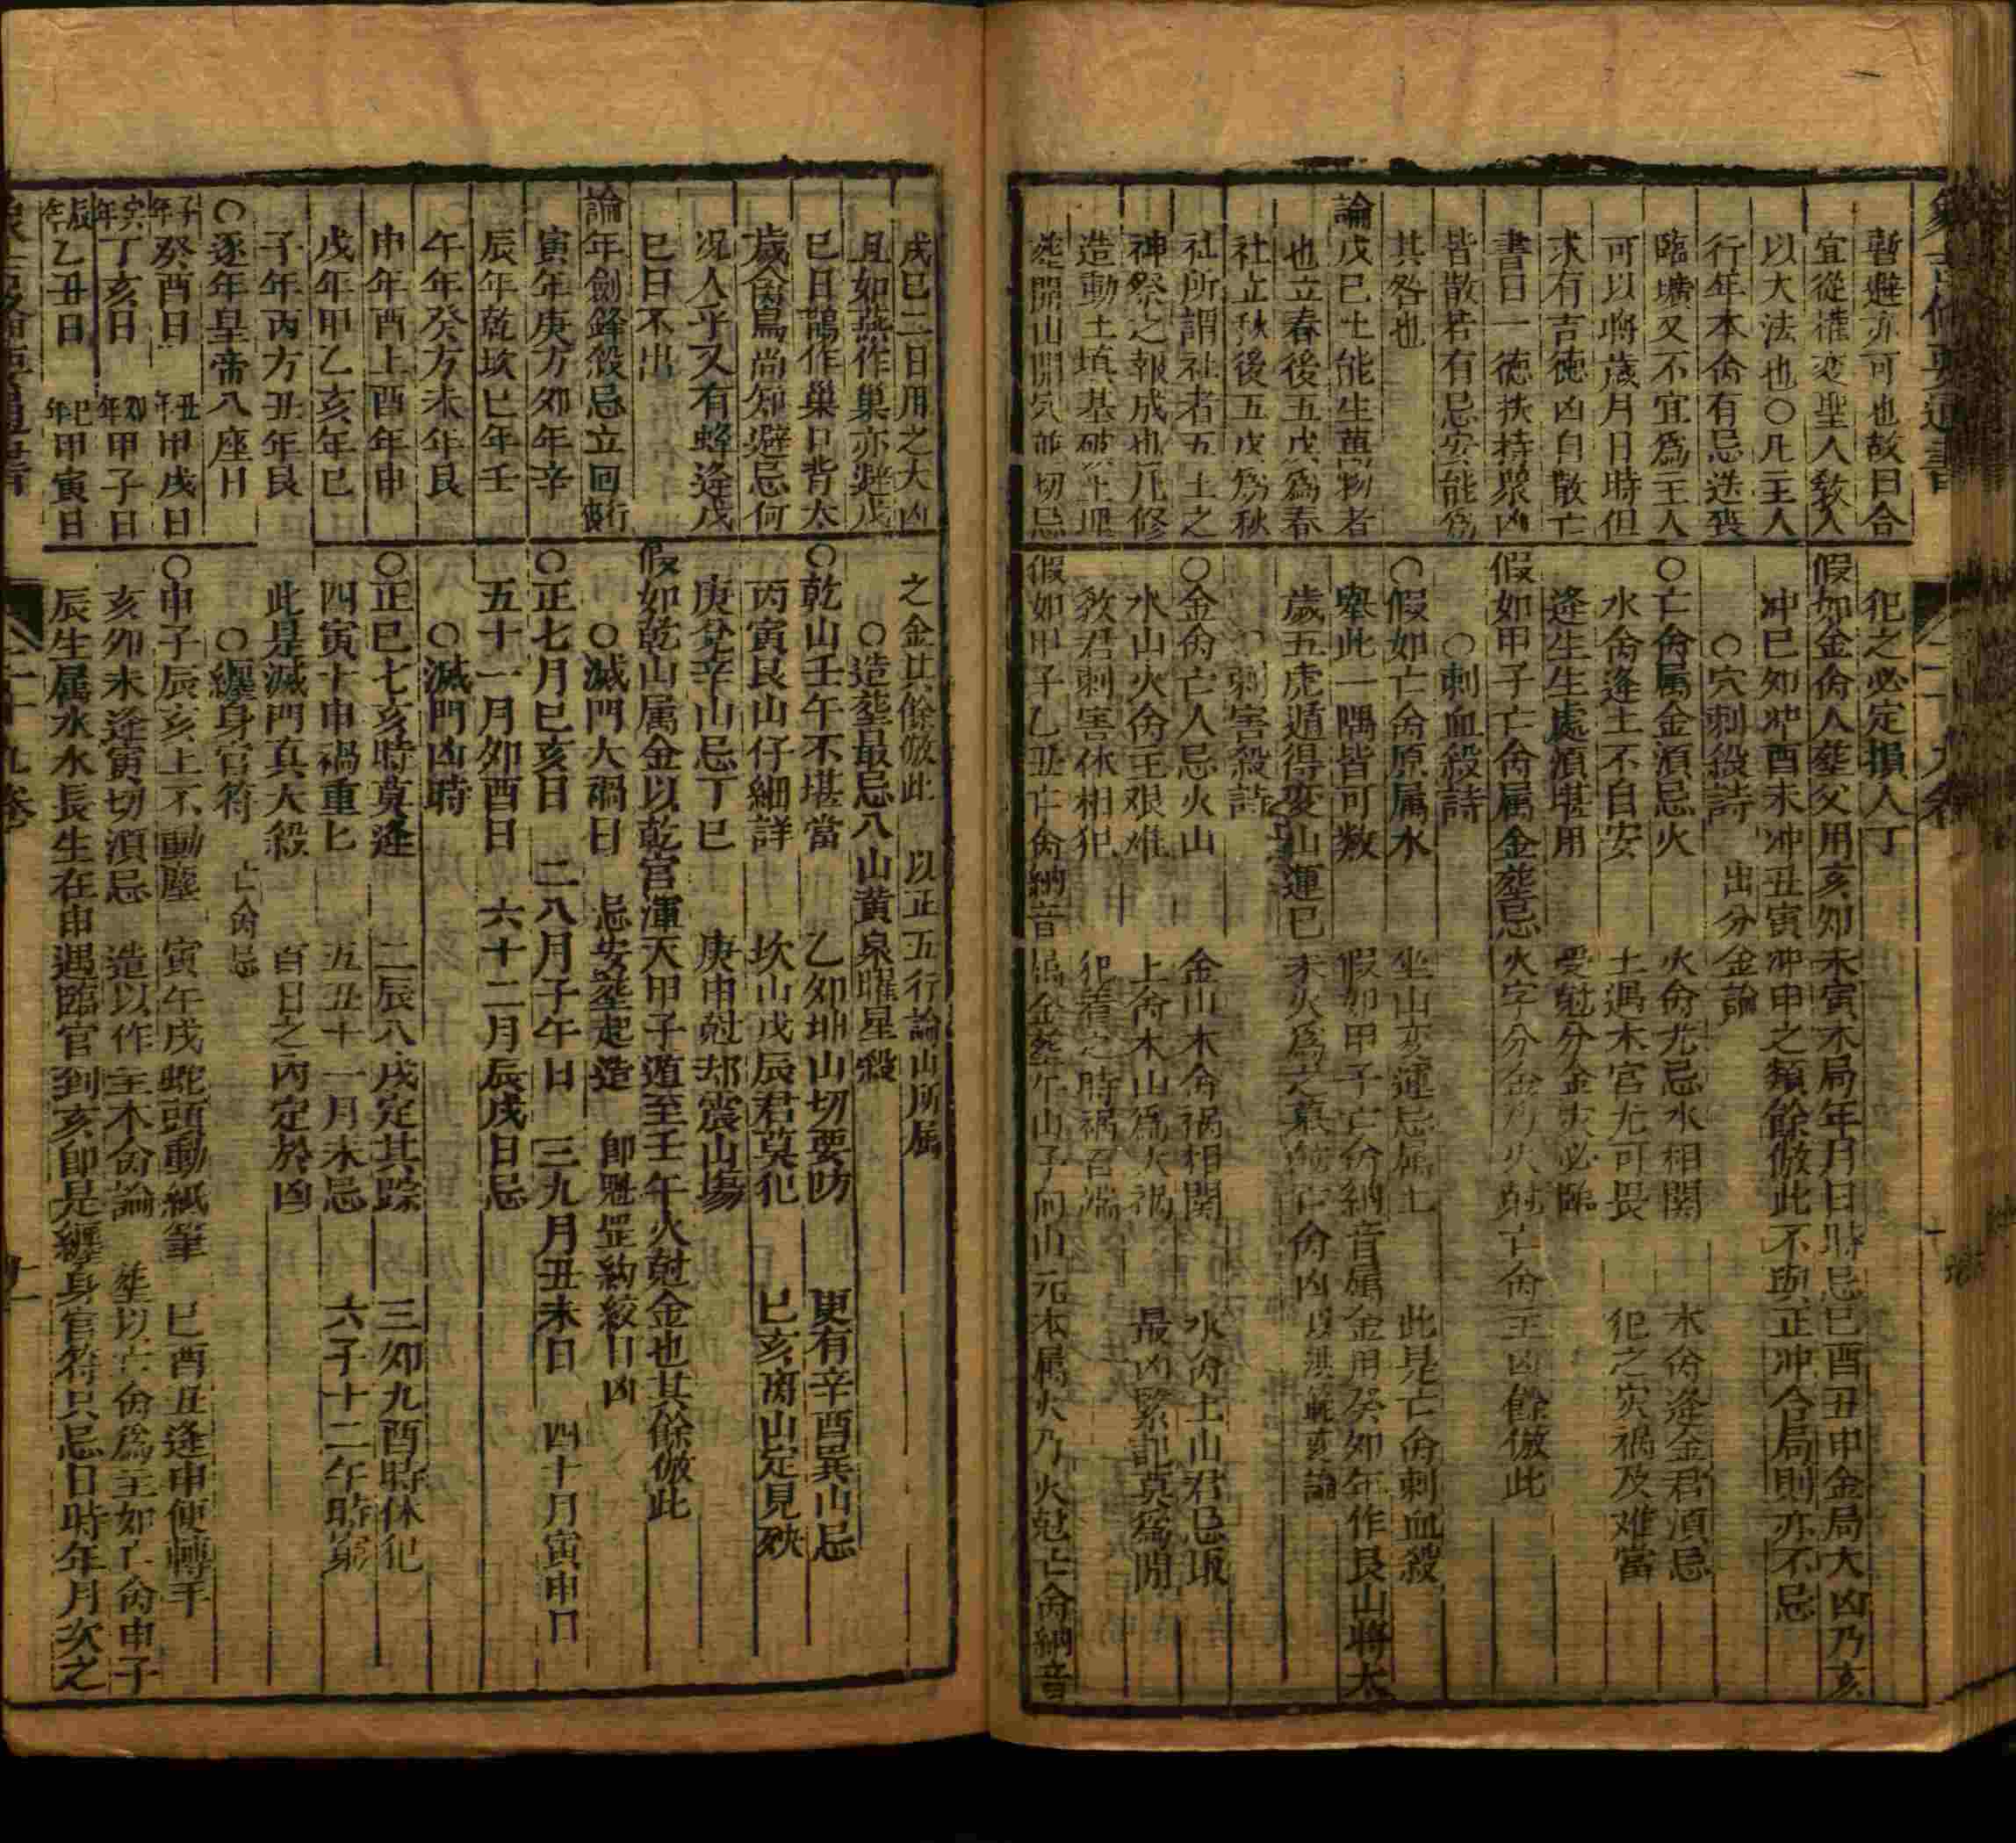 暫避亦可也故曰合
宜從權变聖人教人
以大法也○凡主人
行年本禽有忌送丧
臨壙又不宜為主人
可以將歲月日時但
求有吉德凶自散亡
書曰一德扶持眾凶
皆散若有忌安能為
其咎也
論戊巳土能生萬物者
也立春後五戊為春
社立秋後五戊為秋
社所謂社者五土之
神祭之報成也凡修
造動土填基
塟開山開穴並切忌
犯之必定損人丁
假如金禽人塟父用亥卯未寅木局年月日時忌巳酉丑申金局大凶乃亥
冲巳卯冲酉未冲丑寅冲申之類餘倣此不與正冲合局則亦不忌
○穴刺殺詩 出分金論
○亡禽属金湏忌火 火禽尤忌水相関 木禽逢金君湏忌
水禽逢土不自安 土遇木宮尤可畏 犯之灾禍及难當
逢生生處湏堪用 受尅分金灾必臨
假如甲子亡禽属金塟忌火字分金乃火尅亡禽主凶餘倣此
○刺血殺詩
○假如亡禽原属水 坐山变運忌属土 此是亡禽刺血殺
舉此一隅皆可数 假如甲子亡禽納音属金用癸卯年作艮山將太
歲五虎遁得变山運巳未火為之墓 亡禽凶 以洪範変論
○刺害殺詩
○金禽亡人忌火山 金山木禽禍相関 水禽土山君忌取
水山火禽主艰难 土禽木山為大禍 最凶緊記莫為閒
教君刺害休相犯 犯着之時禍召湍
假如甲子乙丑亡禽納音属金塟午山子向山元本属火乃火尅亡禽納音
戊巳二日用之大凶
且如燕作巢亦避戊
巳日鵲作巢口背太
歲禽鳥尚知避忌何
况人乎又有蜂逢戊
巳日不出
論年劍鋒殺忌立回行丧
寅年庚方卯年辛
辰年乾坎巳年壬
午年癸方未年艮
申年酉上酉年申
戌年甲乙亥年巳
子年丙方丑年艮
○逐年皇帝八座日
子年癸酉日 丑年甲戌日
寅年丁亥日 卯年甲子日
辰年乙丑日 巳年甲寅日
之金其餘倣此 以正五行論山所属
○造塟最忌八山黄泉曜星殺
○乾山壬午不堪當 乙卯坤山切要防 更有辛酉巽山忌
丙寅艮山仔細詳 坎山戊辰君莫犯 巳亥离山定見殃
庚兊辛山忌丁巳 庚申尅却震山塲
假如乾山属金以乾宮渾天甲子遁至壬午火尅金也其餘倣此
○滅門大禍日 忌安塟起造 即魁罡鈎絞日凶
○正七月巳亥日 二八月子午日 三九月丑未日 四十月寅申日
五十一月卯酉日 六十二月辰戌日忌
○滅門凶時
○正巳七亥時莫逢 二辰八戌定其踪 三卯九酉時休犯
四寅十申禍重匕 五丑十一月未忌 六子十二午時窮
此是滅門真大殺 百日之内定於凶
○纏身官符 亡禽忌
○申子辰亥上不動塵 寅午戌蛇頭動紙筆 巳酉丑逢申便轉手
亥卯未逢寅切湏忌 造以作主木禽論 塟以亡禽為主如亡禽申子
辰生属水水長生在申遇臨官到亥即是纏身官符只忌日時年月次之